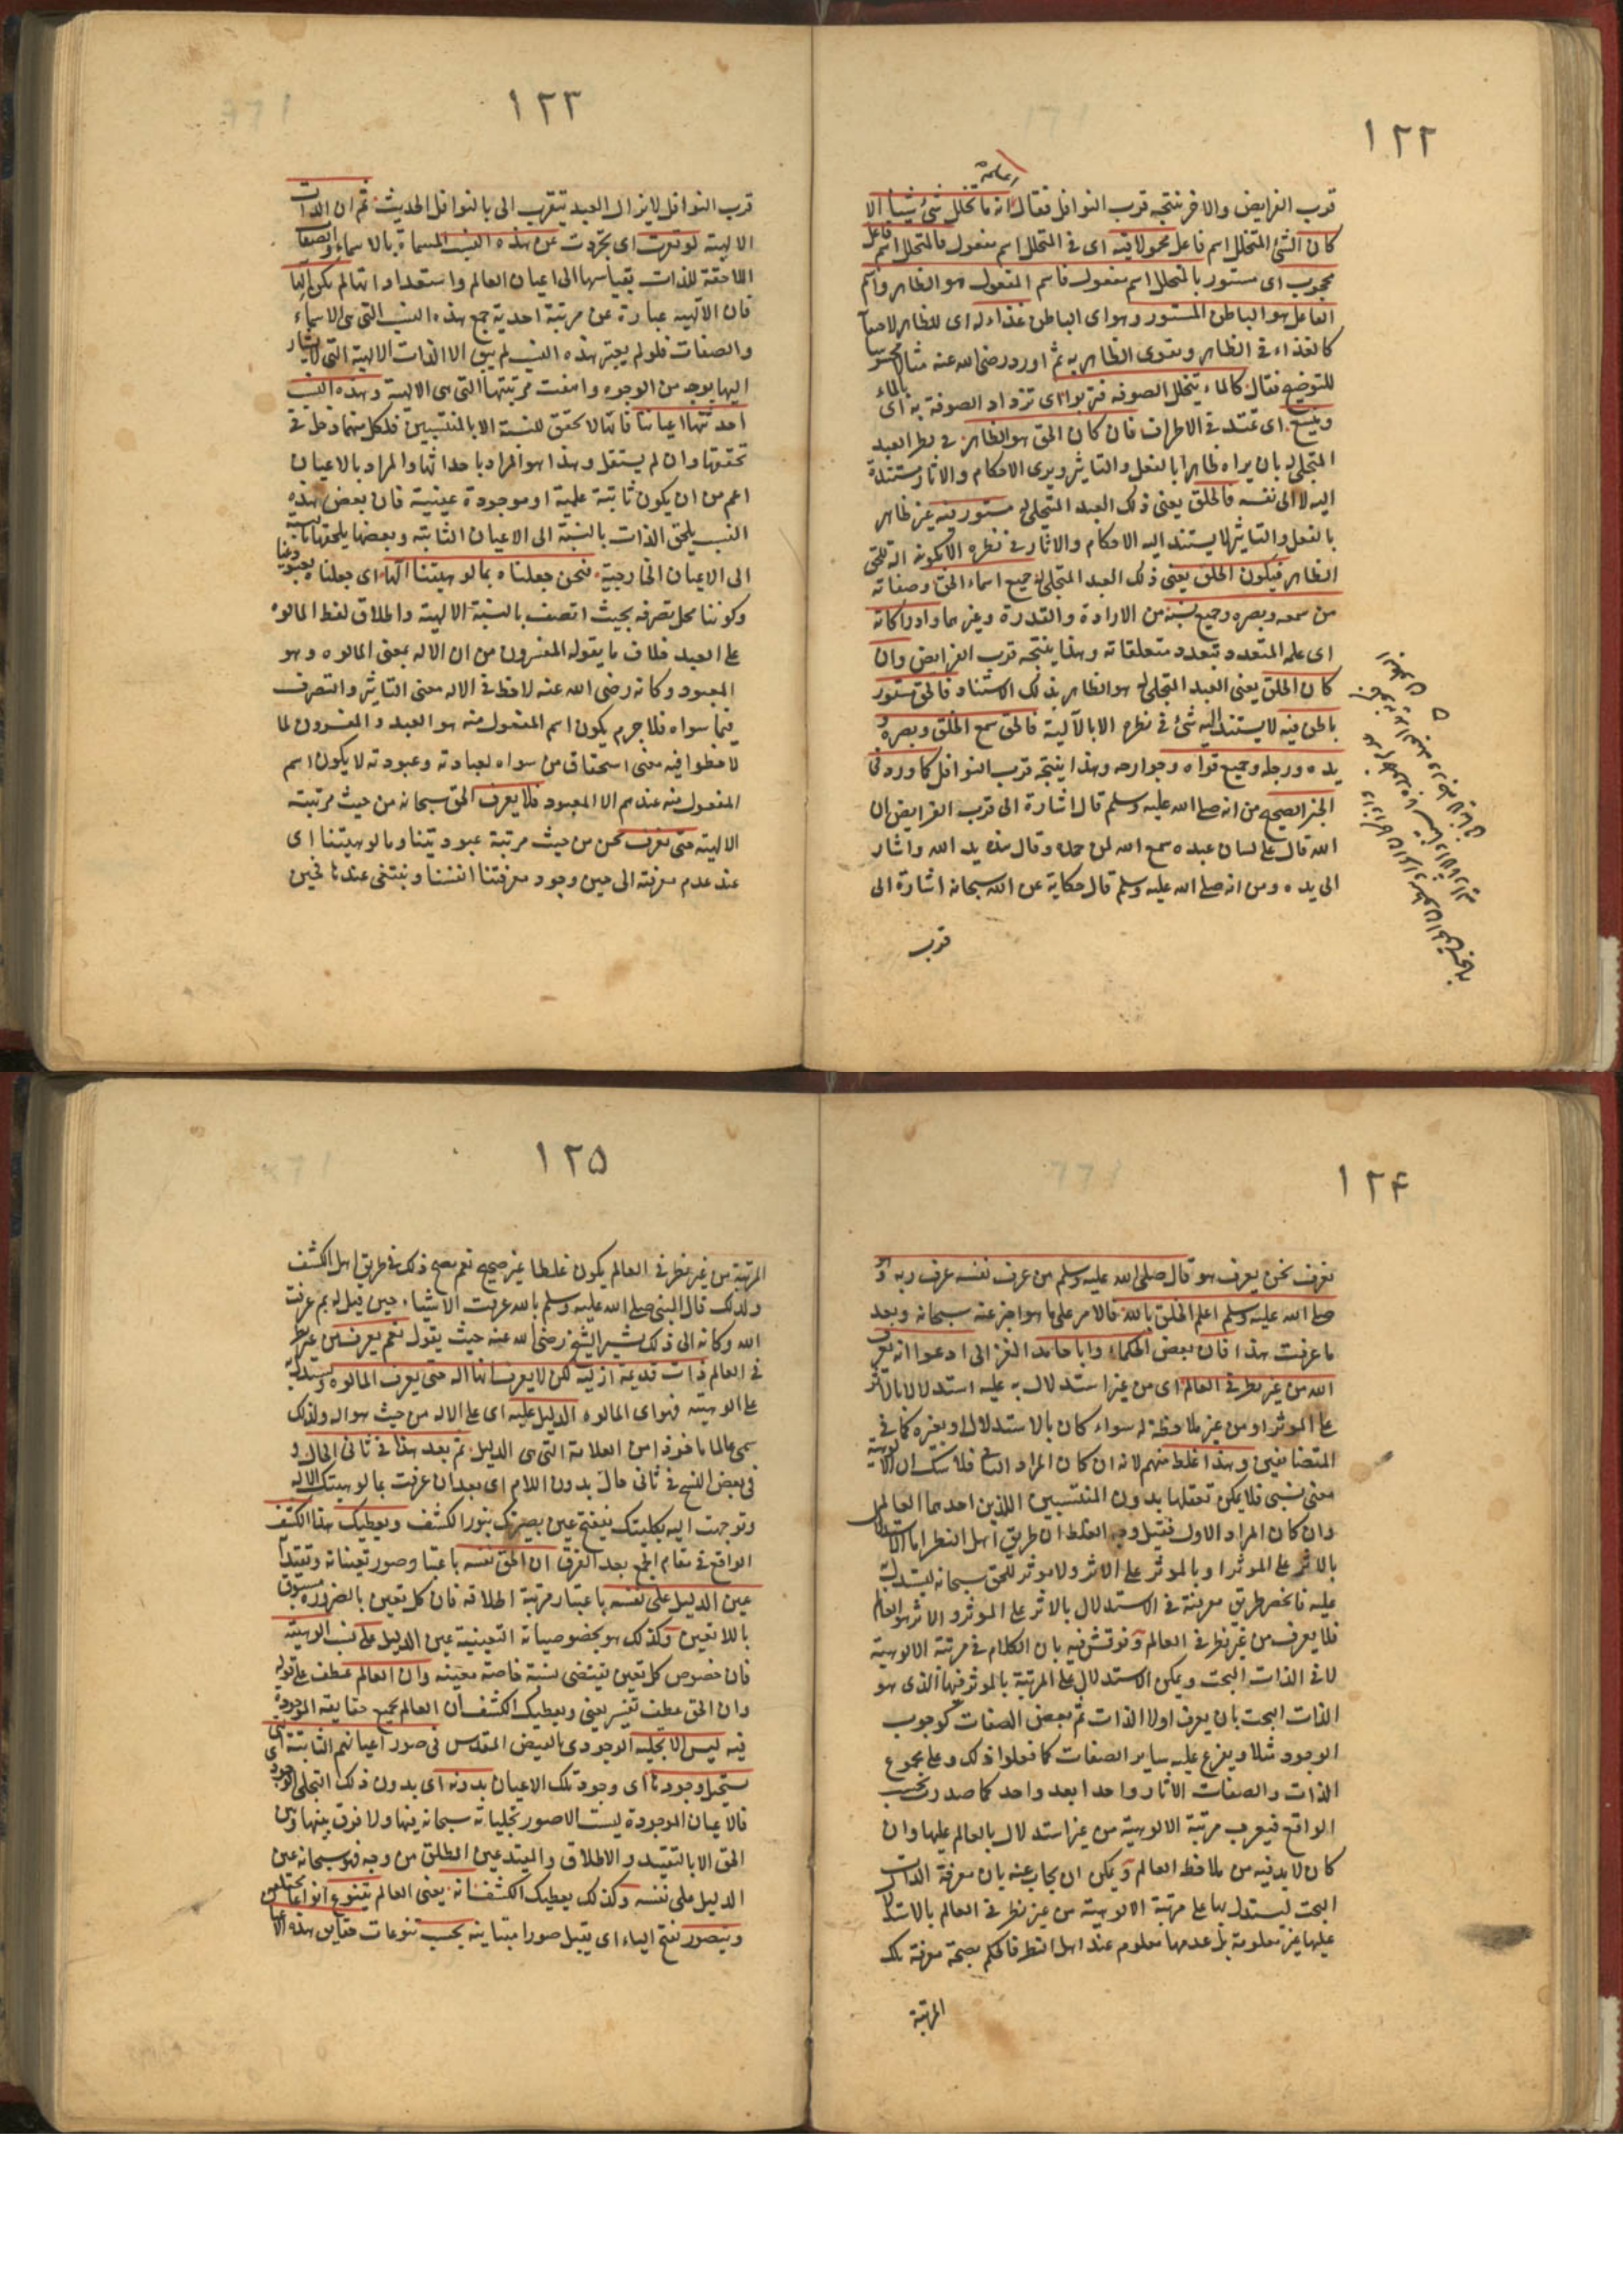 ١٢٢
اعلم
قرب الفرايض والاخر ينتجه قرب النوافل فقال انه ما تخلل شئ شيئا الا
كان الشئ المتخلل اسم فاعل محمولا فيه اى فى المتخلل اسم مفعول فالمتخلل اسم فاعل
محجوب اى مستور بالمتخلل اسم مفعول فاسم المفعول هو الظاهر واسم
الفاعل هو الباطن المستور وهو اى الباطن غذاء له اى للظاهر
كالغذاء فى الظاهر ويقوى الظاهر به ثم اورد رضى الله عنه مثالا محسوسا
للتوضيح فقال كالماء يتخلل الصوفة فتربو اى تزداد الصوفة به اى بالماء
ويتسع اى تمتد فى الاطراف فان كان الحق هو الظاهر فى نظر العبد
المتجلى له بان يراه ظاهرا بالفعل والتاثير ويرى الاحكام والاثار مستندة
اليه لا الى نفسه فالخلق يعنى ذلك العبد المتجلى له مستور فيه غير ظاهر
بالفعل والتاثير لا يستند اليه الاحكام والاثار فى نظره الا بكونه آلة للحق
الظاهر فيكون الخلق يعنى ذلك العبد المتجلى له جميع اسماء الحق وصفاته
من سمعه وبصره وجميع نسبه من الارادة والقدرة وغيرهما وادراكاته
اى علمه المتعدد بتعدد متعلقاته وهذا ينتجه قرب الفرايض وان
كان الخلق يعنى العبد المتجلى له هو الظاهر بذلك الاستناد فالحق مستور
باطن فيه لا يستند اليه شئ فى نظره الا بالآلية فالحق سمع الخلق وبصره و
يده ورجله وجميع قواه وجوارحه وهذا ينتجه قرب النوافل كما ورد فى
الخبر الصحيح من انه صلى الله عليه وسلم قال اشارة الى قرب الفرايض ان
الله قال على لسان عبده سمع الله لمن حمده وقال هذه يد الله واشار
الى يده ومن انه صلى الله عليه وسلم قال حكاية عن الله سبحانه اشارة الى
قرب
١٢٣
قرب النوافل لا يزال العبد يتقرب الى بالنوافل الحديث ثم ان الذات
الالهية لو تعرت اى تجردت عن هذه النسب المسماة بالاسماء والصفات
اللاحقة للذات بقياسها الى اعيان العالم واستعداداتها لم تكن الها
فان الآلهية عبارة عن مرتبة احدية جمع هذه النسب التى هى الاسماء
والصفات فلو لم يعتبر هذه النسب لم يبق الا الذات الالهية التى لا يشار
اليها بوجه من الوجوه وامتعت مرتبتها التى هى الالهية وهذه النسب
احدثتها اعياننا فانها لا تحقق للنسبة الا بالمنتسبين فلكل منهما دخل فى
تحققها وان لم يستقل وهذا هو المراد باحداثها والمراد بالاعيان
اعم من ان يكون ثابتة علمية او موجودة عينية فان بعض هذه
النسب يلحق الذات بالنسبة الى الاعيان الثابته وبعضها يلحقها بالنسبة
الى الاعيان الخارجية فنحن جعلناه بمالوهيتنا الها اى جعلناه بعبوديتنا
وكوننا محل تصرفه بحيث اتصف بالنسبة الالهية واطلاق لفظ المالوه
على العبد خلاف ما يقوله المفسرون من ان الاله بمعنى المالوه وهو
المعبود وكانه رضى الله عنه لاحظ فى الاله معنى التاثير والتصرف
فيما سواه فلا جرم يكون اسم المفعول منه هو العبد والمفسرون لما
لاحظوا فيه معنى استحقاق من سواه لعبادته وعبودته لا يكون اسم
المفعول منه عندهم الا المعبود فلا يعرف الحق سبحانه من حيث مرتبته
الالهية حتى نعرف نحن من حيث مرتبة عبوديتنا ومالوهيتنا اى
عند عدم معرفته الى حين وجود معرفتنا انفسنا وينتفى عندنا فحين
١٢۴
نعرف نحن يعرف هو قال صلى الله عليه وسلم من عرف نفسه عرف ربه و هو
صلى الله عليه وسلم اعلم الخلق بالله فالامر على ما هو اخبر عنه سبحانه وبعد
ما عرفت هذا فان بعض الحكماء وابا حامد الغزالى ادعوا انه يعرف
الله من غير نظر فى العالم اى من غير استدلال به عليه استدلالا بالاثر
على الموثر او من غير ملاحظة له سواء كان بالاستدلال او بغيره كما فى
المتضايفين وهذا غلط منهم لانه ان كان المراد الثانى فلا شك ان الالوهية
معنى نسبى فلا يمكن تعقلها بدون المنتسبين اللذين احدهما العالم
وان كان المراد الاول فقيل وجه الغلط ان طريق اهل النظر اما الاستدلال
بالاثر على الموثر او بالموثر على الاثر ولا موثر للحق سبحانه ليستدل به
عليه فانحصر طريق معرفته فى الاستدلال بالاثر على الموثر والاثر هو العالم
فلا يعرف من غير نظر فى العالم ونوقش فيه بان الكلام فى مرتبة الالوهية
لا فى الذات البحت ويمكن الاستدلال على المرتبة بالموثر فيها الذى هو
الذات البحت بان يعرف اولا الذات ثم بعض الصفات كوجوب
الوجود مثلا ويفرع عليه ساير الصفات كما فعلوا ذلك وعلى مجموع
الذات والصفات الاثار واحدا بعد واحد كما صدر بحسب
الواقع فيعرف مرتبة الالوهية من غير استدلال بالعالم عليها وان
كان لا بد فيه من ملاحظة العالم ويمكن ان يجاب عنه بان معرفة الذات
البحت ليستدل بها على مرتبة الالوهية من غير نظر فى العالم بالاستدلال
عليها غير معلومة بل عدمها معلوم عند اهل النظر فالحكم بصحة معرفة تلك
المرتبة
١٢۵
المرتبة من غير نظر فى العالم يكون غلطا غير صحيح نعم يصح ذلك فى طريق اهل الكشف
ولذلك قال النبى صلى الله عليه وسلم بالله عرفت الاشياء حين قيل له بم عرفت
الله وكانه الى ذلك يشير الشيخ رضى الله عنه حيث يقول نعم يعرف من غير نظر
فى العالم ذات قديمة ازلية لكن لا يعرف انها اله حتى يعرف المالوه ويستدل به
على الوهيته فهو اى المالوه الدليل عليه اى على الاله من حيث هو اله ولذلك
سمى عالما ماخوذا من العلامة التى هى الدليل ثم بعد هذا فى ثانى الحال و
فى بعض النسخ فى ثانى حال بدون اللام اى بعد ان عرفت بمالوهيتك الاله
وتوجهت اليه بكليتك ينفتح عين بصيرتك بنور الكشف ويعطيك هذا الكشف
الواقع فى مقام الجمع بعد الفرق ان الحق نفسه باعتبار صور تعيناته وتقيداته
عين الدليل على نفسه باعتبار مرتبة اطلاقه فان كل تعين بالضرورة مسبوق
باللاتعين وكذلك هو بخصوصياته التعينية عين الدليل على نسب الوهيته
فان خصوص كل تعين يقتضى نسبة خاصة معينة وان العالم عطف على قوله
وان الحق عطف تفسير يعنى ويعطيك الكشف ان العالم بجميع حقايقه الموجودة
فيه ليس الا تجليه الوجودى بالفيض المقدس فى صور اعيانهم الثابتة التى
يستحيل وجودها اى وجود تلك الاعيان بدونه اى بدون ذلك التجلى الوجودى
فالاعيان الموجودة ليست الا صور تجلياته سبحانه فيها ولا فرق بينها وبين
الحق الا بالتقييد والاطلاق والمقيد عين المطلق من وجه فهو سبحانه عين
الدليل على نفسه وكذلك يعطيك الكشف انه يعنى العالم يتنوع انواعا مختلفة
ويتصور بفتح الياء اى يقبل صورا متباينة بحسب تنوعات حقايق هذه الاعيان